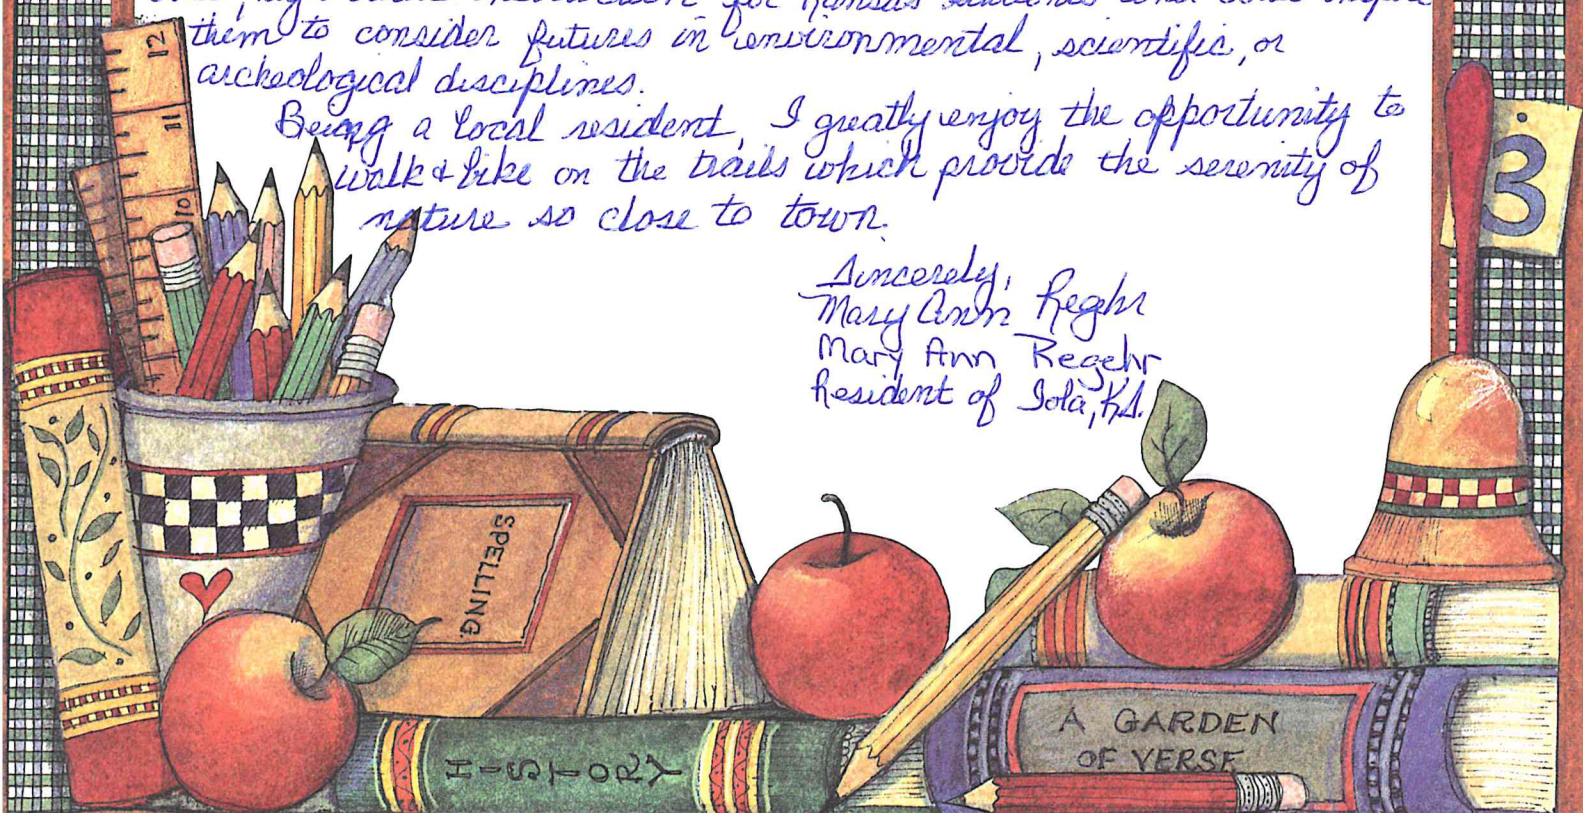 for Kansas
them to consider futures in environmental, scientific, or
archeological disciplines.
Being a local resident, I greatly enjoy the opportunity to
walk & bike on the trails which provide the serenity of
nature so close to town.
Sincerely,
Mary Ann Regehr
Mary Ann Regehr
Resident of Iola, KS.
12
11
10
3
SPELLING
HISTORY
A GARDEN
OF VERSE